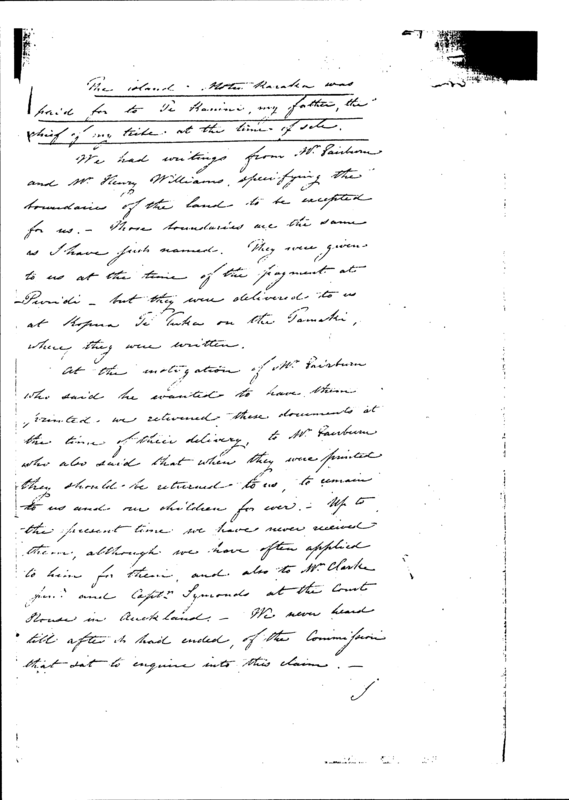 The island - Motu Karaka was
paid for to Te Kanini, my father, the
chief of my tribe at the time of sale.
We had writings from Mr. Fairburn
and Mr. Henry Williams, specifying the
boundaries of the land to be excepted
for us. - Those boundaries are the same
as I have just named. They were given
to us at the time of the payment at
Puridi - but they were delivered to us
at Kopua Te on the Tamaki,
where they were written.
At the instigation of Mr. Fairburn
who said he wanted to have them
printed. we returned these documents at
the time of their delivery, to Mr Fairburn
who also said that when they were printed
they should be returned to us, to remain
to us and our children for ever. - Up to
the present time we have never received
them, although we have often applied
to him for them, and also to Mr. Clarke
junr. and Captn. Symonds at the Court
House in Auckland. - We never heard
till after it had ended, of the Commission
that sat to enquire into this claim. -